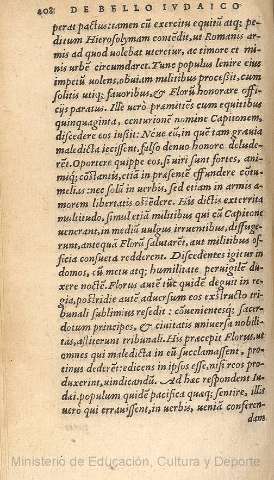 408 DE BELLO IVDAICO
perat pactus: tamen cũ exercitu equitũ atq; pe-
ditum Hierosolymam contẽdit, ut Romanis ar-
mis ad quod uolebat uteretur, ac timore et mi-
nis urbẽ circumdaret. Tunc populus lenire eius
impetũ uolens, obuiam militibus processit, cum
solitis utiq; fauoribus, & Florũ honorare offi-
cijs paratus. Ille uerò præmittẽs cum equitibus
quinquaginta, centurionẽ nomine Capitonem,
discedere eos iussit: Neue eũ, in quẽ tam grauia
maledicta iecissent, falso denuo honore delude-
rẽt. Oportere quippe eos, si uiri sunt fortes, ani-
miq; cõstantis, etiã in præsentẽ effundere cõtu-
melias: nec solũ in uerbis, sed etiam in armis a-
morem libertatis ostẽdere. His dictis exterrita
multitudo, simul etiã militibus qui cũ Capitone
uenerant, in mediũ uulgus irruentibus, diffuge-
runt, antequã Florũ salutarẽt, aut militibus of-
ficia consueta redderent. Discedentes igitur in
domos, cũ metu atq; humilitate peruigilẽ du-
xere noctẽ. Florus autẽ tũc quidẽ deguit in re-
gia, postridie autẽ aduersum eos exstructo tri-
bunali sublimius resedit: cõuenientesq; sacer-
dotum principes, & ciuitatis uniuersa nobili-
tas, astiterunt tribunali. His præcepit Florus, ut
omnes qui maledicta in eũ iacũlamassent, pro-
tinus dederẽt: edicens in ipsos esse, nisi reos pro-
duxerint, uindicandũ. Ad hæc respondent Iu-
dæi. populum quidẽ pacifica quæq; sentire, illis
uero qui errauissent, in uerbis, ueniã conferen-
dam.
Ministerio de Educación, Cultura y Deporte